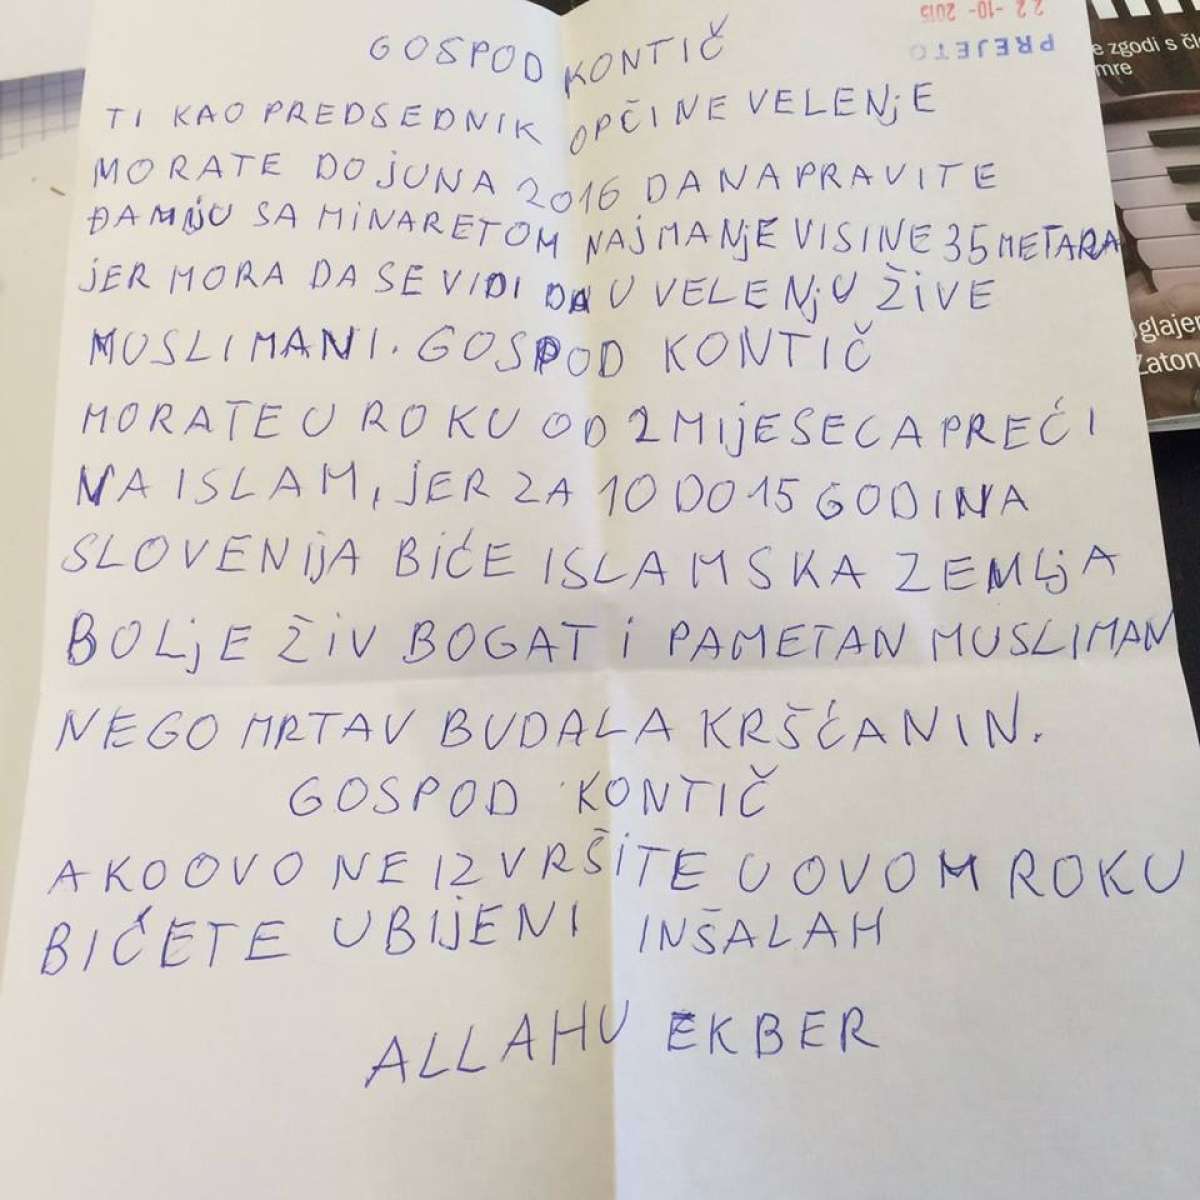 22-10-2015
PREJETO
GOSPOD KONTIČ
TI KAO PREDSEDNIK OPČINE VELENjE
MORATE DO jUNA 2016 DA NAPRAVITE
ĐAMIjU SA MINARETOM NAjMANjE VISINE 35 METARA
jER MORA DA SE VIDI DA U VELENjU ŽIVE
MUSLIMANI. GOSPOD KONTIČ
MORATE U ROKU OD 2 MIjESECA PREĆI
NA ISLAM, jER ZA 10 DO 15 GODINA
SLOVENIjA BIĆE ISLAMSKA ZEMLjA
BOLjE ŽIV BOGAT I PAMETAN MUSLIMAN
NEGO MRTAV BUDALA KRŠĆANIN.
GOSPOD KONTIČ
AKO OVO NE IZVRŠITE U OVOM ROKU
BIĆETE UBIJENI INŠALAH
ALLAHU EKBER
e zgodi s čl
mre
glajen
Zaton